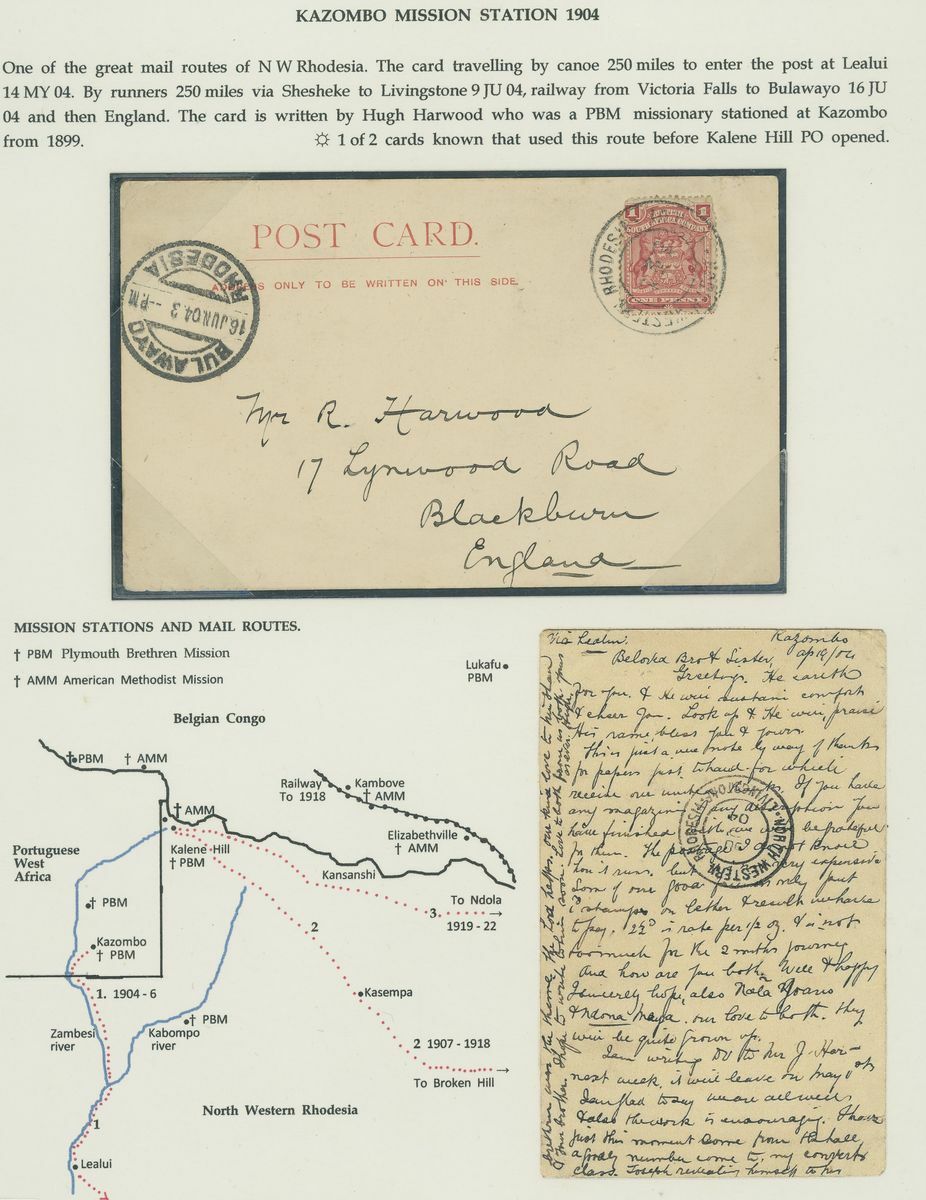 KAZOMBO MISSION STATION 1904
One of the great mail routes of N W Rhodesia. The card travelling by canoe 250 miles to enter the post at Lealui
14 MY 04. By runners 250 miles via Shesheke to Livingstone 9 JU 04, railway from Victoria Falls to Bulawayo 16 JU
04 and then England. The card is written by Hugh Harwood who was a PBM missionary stationed at Kazombo
from 1899. ☼ 1 of 2 cards known that used this route before Kalene Hill PO opened.
POST CARD.
ADDRESS ONLY TO BE WRITTEN ON THIS SIDE.
RHODESIA
16 JUN 04 3 -- PM
BULAWAYO
1 1
SOUTH AFRICA COMPANY
ONE PENNY
RHODESIA
WESTERN
Mr R. Harwood
17 Lynwood Road
Blackburn
England
MISSION STATIONS AND MAIL ROUTES.
† PBM Plymouth Brethren Mission
† AMM American Methodist Mission
Lukafu
PBM
Belgian Congo
†PBM
† AMM
Railway
To 1918
Kambove
† AMM
† AMM
Elizabethville
† AMM
Portuguese
West
Africa
Kalene Hill
† PBM
Kansanshi
To Ndola
3
1919 - 22
† PBM
2
Kazombo
† PBM
1. 1904 - 6
Kasempa
Zambesi
river
Kabompo
river
† PBM
2 1907 - 1918
To Broken Hill
North Western Rhodesia
1
Lealui
Via Lealui. Kazombo
Ap 19/04
Beloved Bro & Sister,
Greetings. He careth
for you. & He will sustain comfort
& cheer you. Look up & He will, praise
His name, bless you & yours
This is just a wee note by way of thanks
for papers just to hand. for which
receive our united. If you have
any magazines any description you
have finished with, we will be grateful
for them. The postage I do not know
how it runs. but very expensive
Some of our good only put
stamps on letter & result we have
to pay. 2½d is rate per 1/2 oz. & is not
too much for the 2 months journey
And how are you both. Well & happy
I sincerely hope, also
&. our love to both. they
will be quite grown up.
I am writing DV to Mr J. Har-
next week, it will leave on May 1st
I am glad to say we are all well
& also the work is encouraging. I have
just this moment come from the hall
a goodly number come to, my converts
class. Joseph revealing himself to his
brethren was the theme. The Lord
NORTH WESTERN RHODESIA
LIVINGSTONE
04